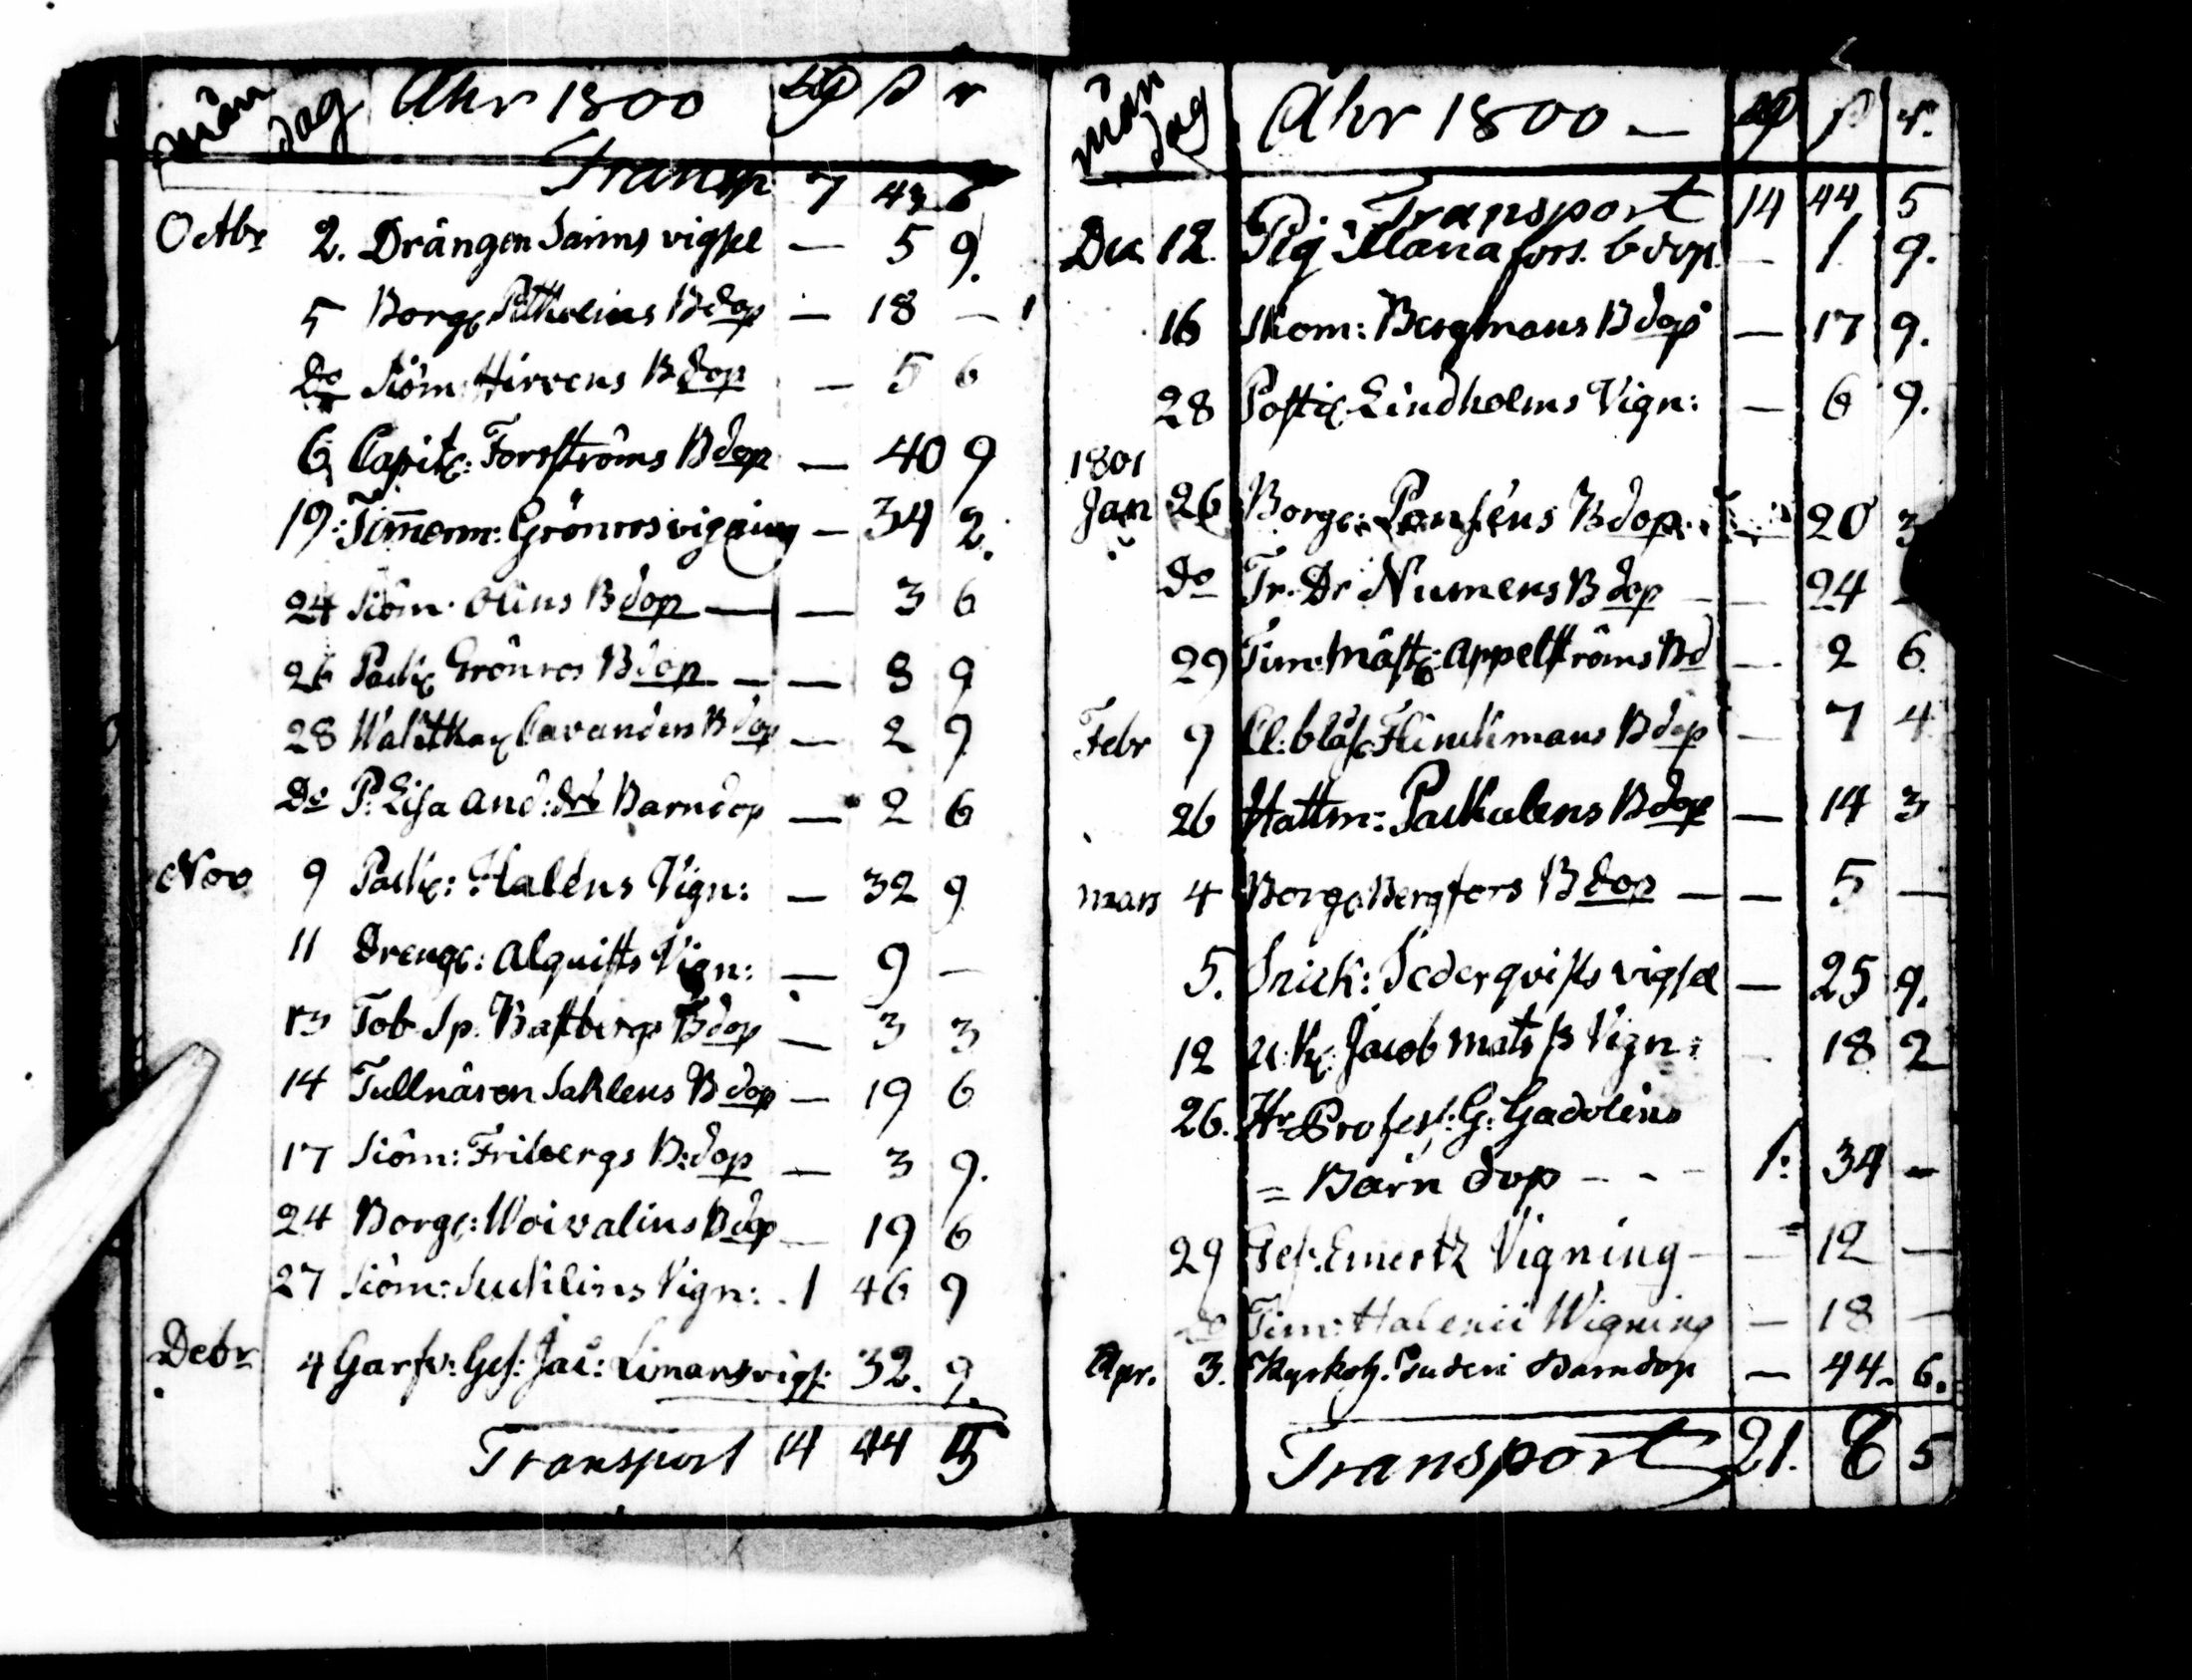 mån dag Ahr 1800 ß r
Transp 7 43 6
Octbr 2. Drängen Saims vigsel — 5 9.
5 Borg: Pitkelins Bdop — 18 —
Do Siöm: Hirvens Bdop — 5 6
6 Capit: Forsströms Bdop — 40 9
19: Timerm: Grönros vigning — 34 2.
24 Siöm: Olins Bdop — — 3 6
26 Pack: Grönros Bdop — — 8 9
28 Cavanders Bdop — 2 9
Do P: Lisa And: dr Barndop — 2 6
Nov 9 Pack: Haléns Vign: — 32 9
11 Dreng: Alquists Vign: — 9 —
13 Tob. Sp. Bastbergs Bdop — 3 3
14 Tullnären Sahlens Bdop — 19 6
17 Siöm: Fribergs B:dop — 3 9.
24 Borg: Woivalins Bdop — 19 6
27 Siöm: Vign: 1 46 9
Debr 4 Garfv: Ges: Jac: Limans vigs: 32. 9.
Transport 14 44 5
mån dag Ahr 1800 — ß r.
Transport 14 44 5
Dec 12. Pig Maria fors. bdop — 1 9.
16 Skom: Bergmans Bdop — 17 9.
28 Post: Lindholms Vign: — 6 9.
1801
Jan 26 Borg: Bdop — 20 3
Do Tr. Dr Numers Bdop — 24
29 Tim: mäst: Appelströms Bd — 2 6.
Febr 9 Cl: blås: Flinckmans Bdop — 7 4
26 Hattm: Packalens Bdop — 14 3
mars 4 Borg: Bergfors Bdop — — 5 —
5. Snick: Sederqvists vigsel — 25 9.
12 Jacob Mats ß Vign: 18 2
26. Hr Profess: G: Gadolins
= Barn dop - - - 1: 34 —
29 Ges. Emertz Vigning — — 12 —
Do Tim: Halenii Wigning — 18 —
Apr. 3. Kyrkoh. Judeni Barndop — 44. 6.
Transport 21. 8 5